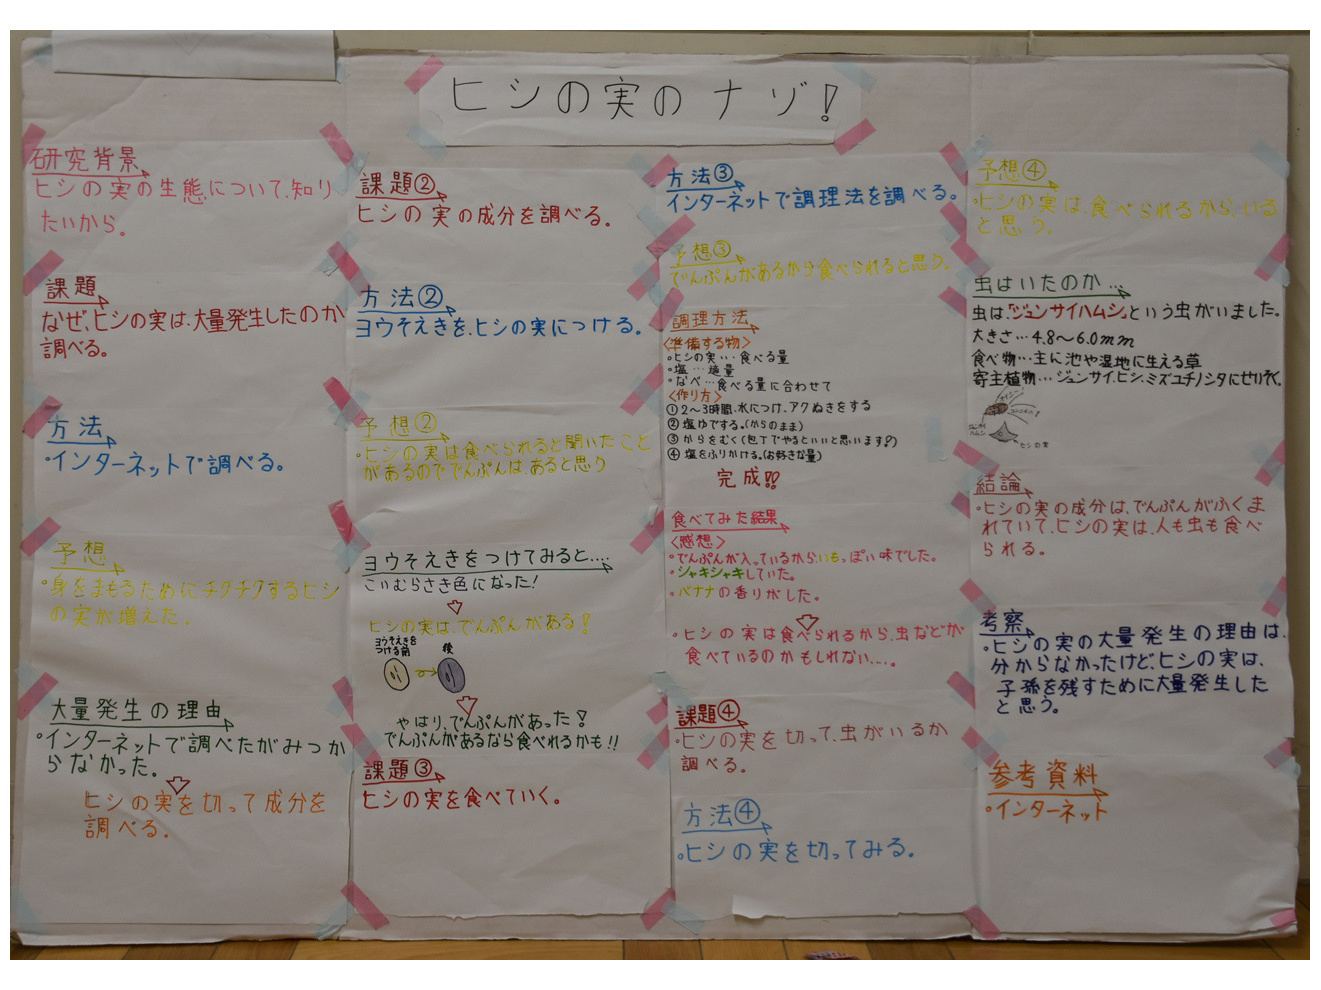 ヒシの実のナゾ!
研究背景
ヒシの実の生態について、知り
たいから。
課題
なぜ、ヒシの実は、大量発生したのか
調べる。
方法
・インターネットで調べる。
予想
・身をまもるためにチクチクするヒシ
の実が増えた。
大量発生の理由
・インターネットで調べたがみつか
らなかった。
ヒシの実を切って成分を
調べる。
課題②
ヒシの実の成分を調べる。
方法②
ヨウそえきを、ヒシの実につける。
予想②
・ヒシの実は食べられると聞いたこと
があるのででんぷんは、あると思う
ヨウそえきをつけてみると....
こいむらさき色になった!
ヒシの実は、でんぷんがある!
ヨウそえきを
つける前
後
やはり、でんぷんがあった!
でんぷんがあるなら食べれるかも!!
課題③
ヒシの実を食べていく。
方法③
インターネットで調理法を調べる。
予想③
でんぷんがあるから食べられると思う。
調理方法
<準備する物>
・ヒシの実...食べる量
・塩...適量
・なべ...食べる量に合わせて
<作り方>
①2~3時間、水につけ、アクぬきをする
②塩ゆでする。(からのまま)
③からをむく(包丁でやるといいと思います!)
④塩をふりかける。(お好きな量)
完成!!
食べてみた結果
<感想>
・でんぷんが入っているから、いもっぽい味でした。
・シャキシャキしていた。
・バナナの香りがした。
・ヒシの実は食べられるから、虫などが
食べているのかもしれない....。
課題④
・ヒシの実を切って、虫がいるか
調べる。
方法④
・ヒシの実を切ってみる。
予想④
・ヒシの実は、食べられるから、いる
と思う。
虫はいたのか...
虫は、「ジュンサイハムシ」という虫がいました。
大きさ...4.8~6.0mm
食べ物...主に池や湿地に生える草
寄主植物...ジュンサイ、ヒシ、ミズユキノシタにせいそく。
ジュンサイ
ハムシ
ヒシの実
結論
・ヒシの実の成分は、でんぷんがふくま
れていて、ヒシの実は、人も虫も食べ
られる。
考察
・ヒシの実の大量発生の理由は、
分からなかったけど、ヒシの実は、
子孫を残すために大量発生した
と思う。
参考資料
・インターネット